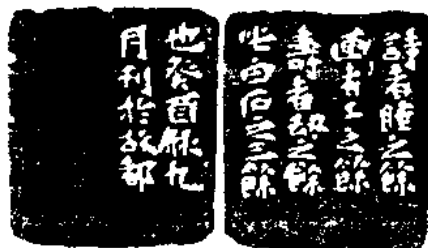 詩者睡之餘
畫者工之餘
壽者劫之餘
此白石之三餘
也癸酉秌九
月刊於故都